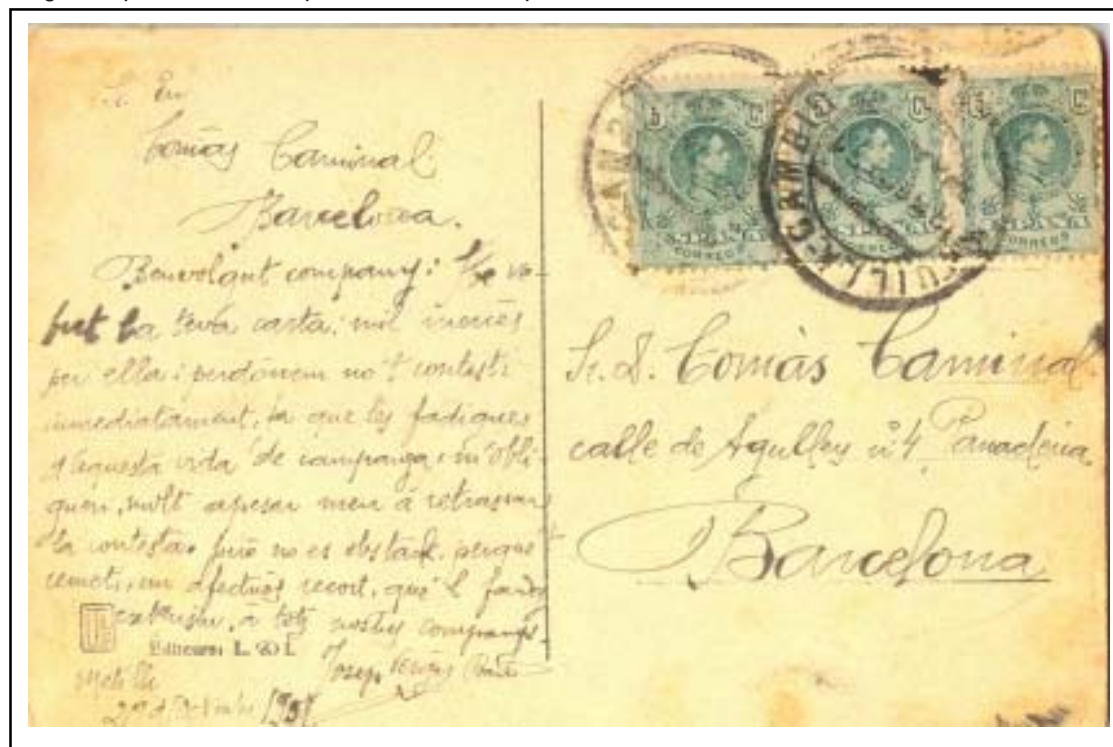 En
Tomás Caminal
Barcelona.
Benvolgut company: He re-
but la teva carta; mil mercés
per ella i perdónem no t' contesti
inmediatament, ja que les fadigues
d'aquesta vida de campanya, m'obli-
guen, molt apesar meu á retrassar
la contesta. pró no es obstacle, perque t'
remeti, un afectuós recort, que'l farás
extensiu, á tots nostres companys.
Editeurs L.
Josep
Melilla
CAMBIO
5 Cs
5 Cs
ESPAÑA
CORREOS
CORREOS
CORREOS
Sr. D. Tomás Caminal.
calle de Agulles nº 4, Panaderia
Barcelona